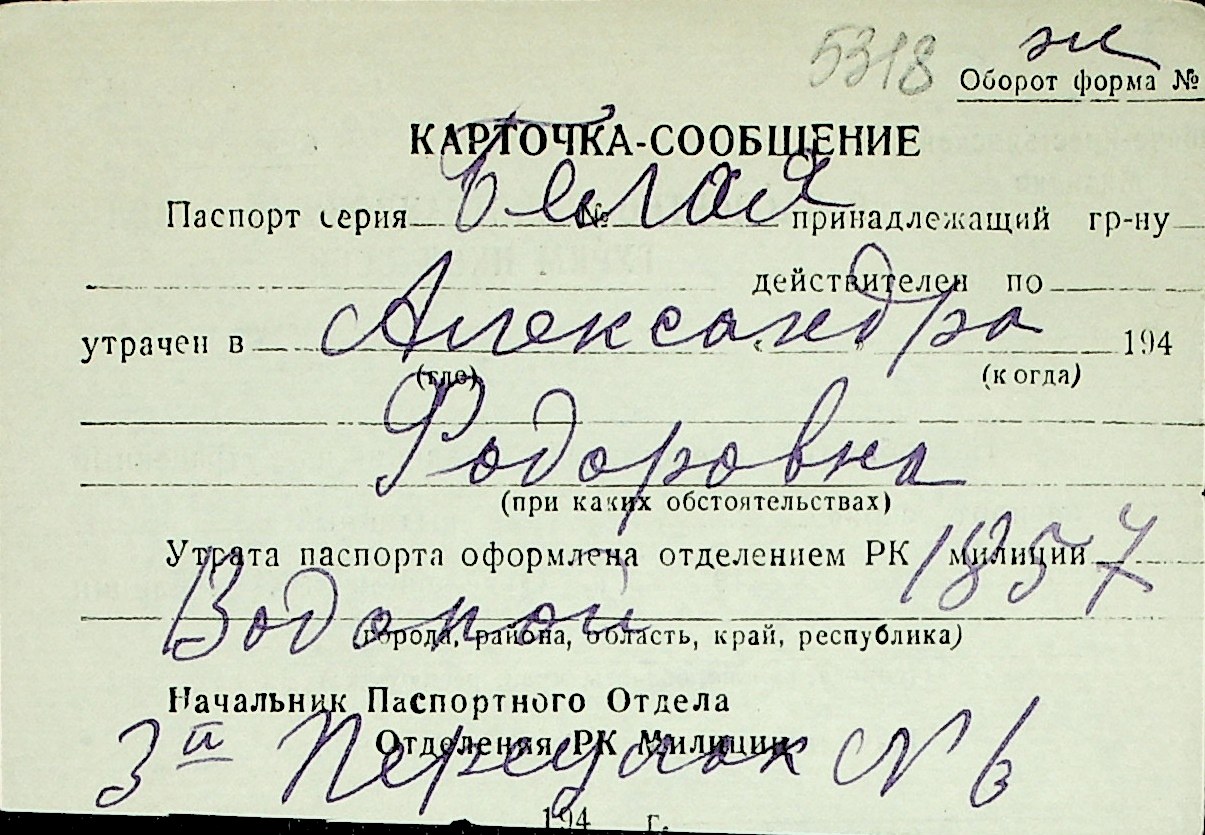 5318 ж
Оборот форма №
КАРТОЧКА-СООБЩЕНИЕ
Белая
Паспорт серия № принадлежащий гр-ну
действителен по
Александра
утрачен в « » 194
(где) (когда)
Фодоровна
(при каких обстоятельствах)
Утрата паспорта оформлена отделением РК милиции
1857
Водопой
(города, района, область, край, республика)
Начальник Паспортного Отдела
Отделения РК Милиции
3й Переулок № 6
194 г.